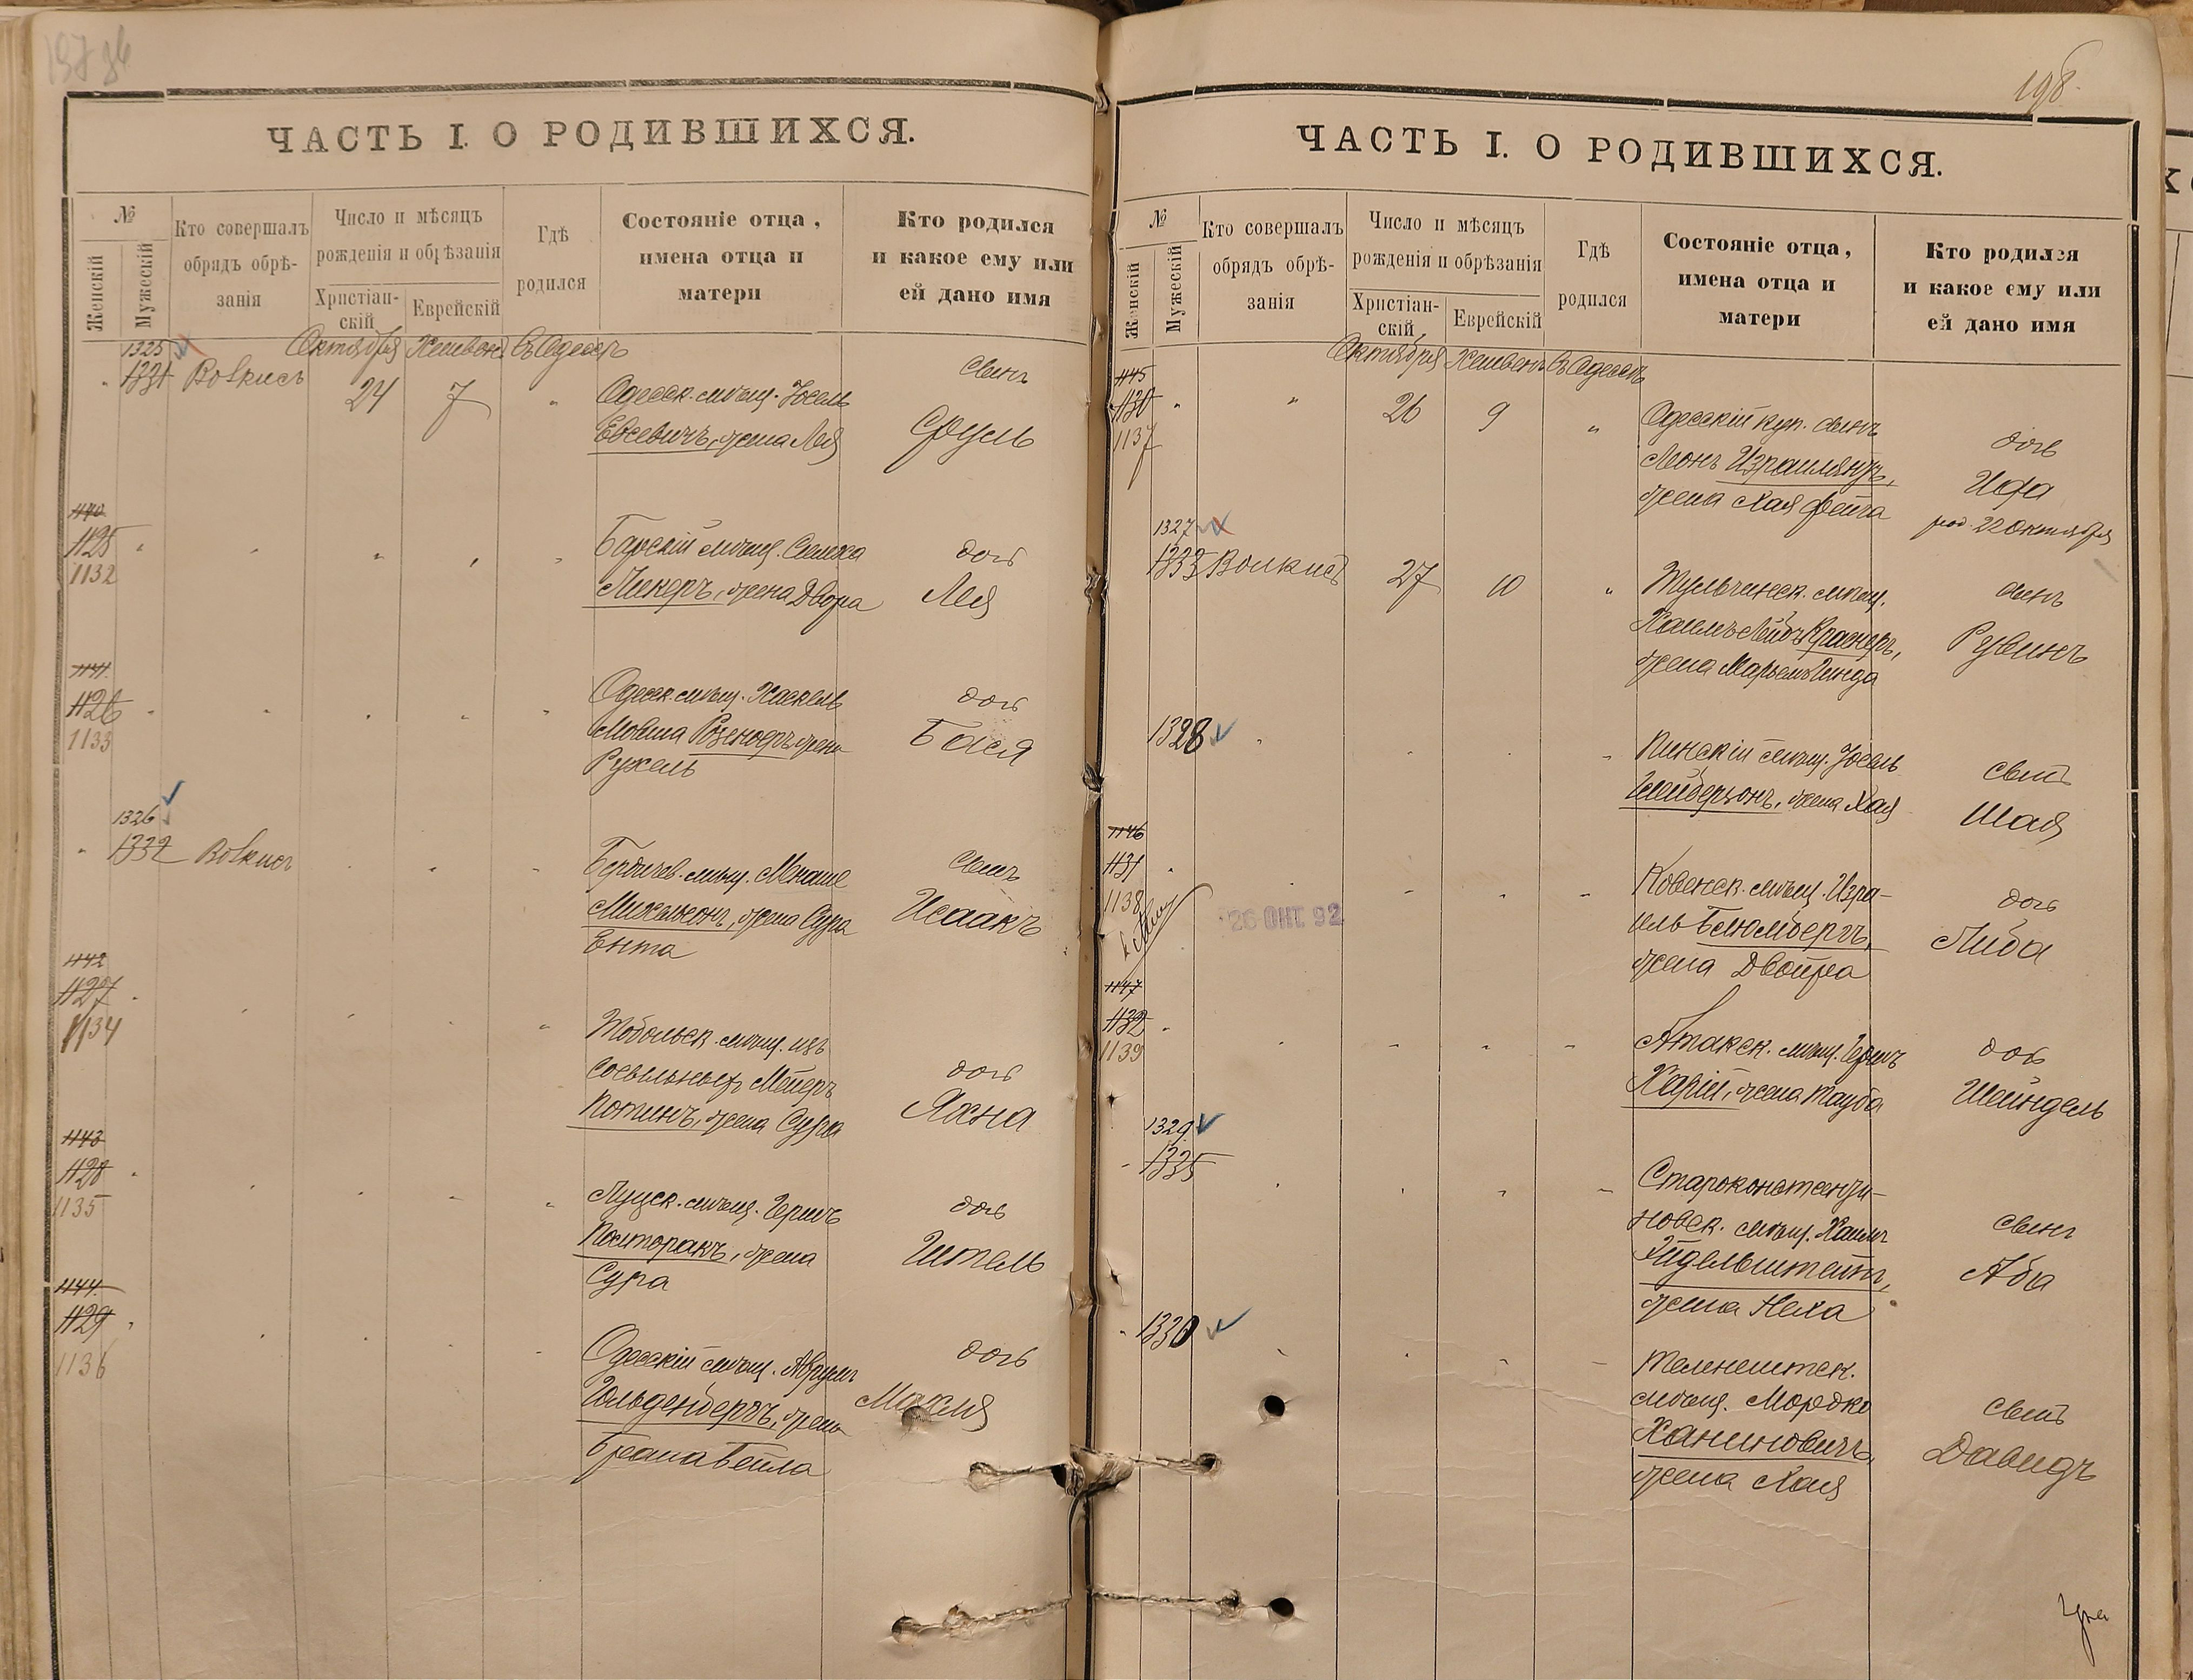 198.
ЧАСТЬ I. О РОДИВШИХСЯ.
№
Женскій
Мужескій
Кто совершалъ
обрядъ обрѣ-
занія
Число и мѣсяцъ
рожденія и обрѣзанія
Христіан-
скій
Еврейскій
Гдѣ
родился
Состояніе отца,
имена отца и
матери
Кто родился
и какое ему или
ей дано имя
Октября Хешвон. въ Одессѣ
1325
1331 Волкисъ 24 7 " Одесск. мѣщ. Іосель сынъ
Евсевичъ, жена Лея Сруль
1140
1125
1132
Барскій мѣщ. Симха дочь
Пикеръ, жена Двора Лея
1141
1126
1133
Одесск. мѣщ. Хаскель дочь
Мовша Розенферъ, жена Бася
Рухель
1326
1332 Волкисъ Бердичев. мѣщ. Менаше сынъ
Михельсонъ, жена Сура Исаакъ
Ента
1142
1127
1134
Тобольск. мѣщ. изъ
ссыльныхъ Мейеръ дочь
Котинъ, жена Сура Яхна
1143
1128
1135
Луцк. мѣщ. Гершъ дочь
Полторакъ, жена Гитель
Сура
1144
1129
1136
Одесскій мѣщ. Аврумъ дочь
Гольденбергъ, жена Макля
Брана Бейла
ЧАСТЬ I. О РОДИВШИХСЯ.
№
Женскій
Мужескій
Кто совершалъ
обрядъ обрѣ-
занія
Число и мѣсяцъ
рожденія и обрѣзанія
Христіан-
скій
Еврейскій
Гдѣ
родился
Состояніе отца,
имена отца и
матери
Кто родился
и какое ему или
ей дано имя
Октября Хешвонъ въ Одессѣ
1145
1130 " " 26 9 " Одесскій куп. сынъ дочь
1137
Леонъ Израилянцъ, Ида
жена Хая Фейга род. 22 Октября
1327
1333 Волкисъ 27 10 " Тульчинск. мѣщ. сынъ
Хаимъ Лейбъ Краснеръ, Рувинъ
жена Марьемъ Гинда
1328
Пинскій мѣщ. Іосель сынъ
Глейберзонъ, жена Хая Шая
1146
1131
1138
26 ОКТ. 92
Ковенск. мѣщ. Изра-
иль Блюмбергъ, дочь
жена Двойра Либа
1147
1132
1139
Атакск. мѣщ. Гершъ дочь
Харій, жена Тауба Шейндель
1329
1335
Староконстанти-
новск. мѣщ. Хаимъ сынъ
Эйдельштейнъ, Аба
жена Неха
1330
Теленештск.
мѣщ. Мордко сынъ
Ханиновичъ, Давидъ
жена Хая